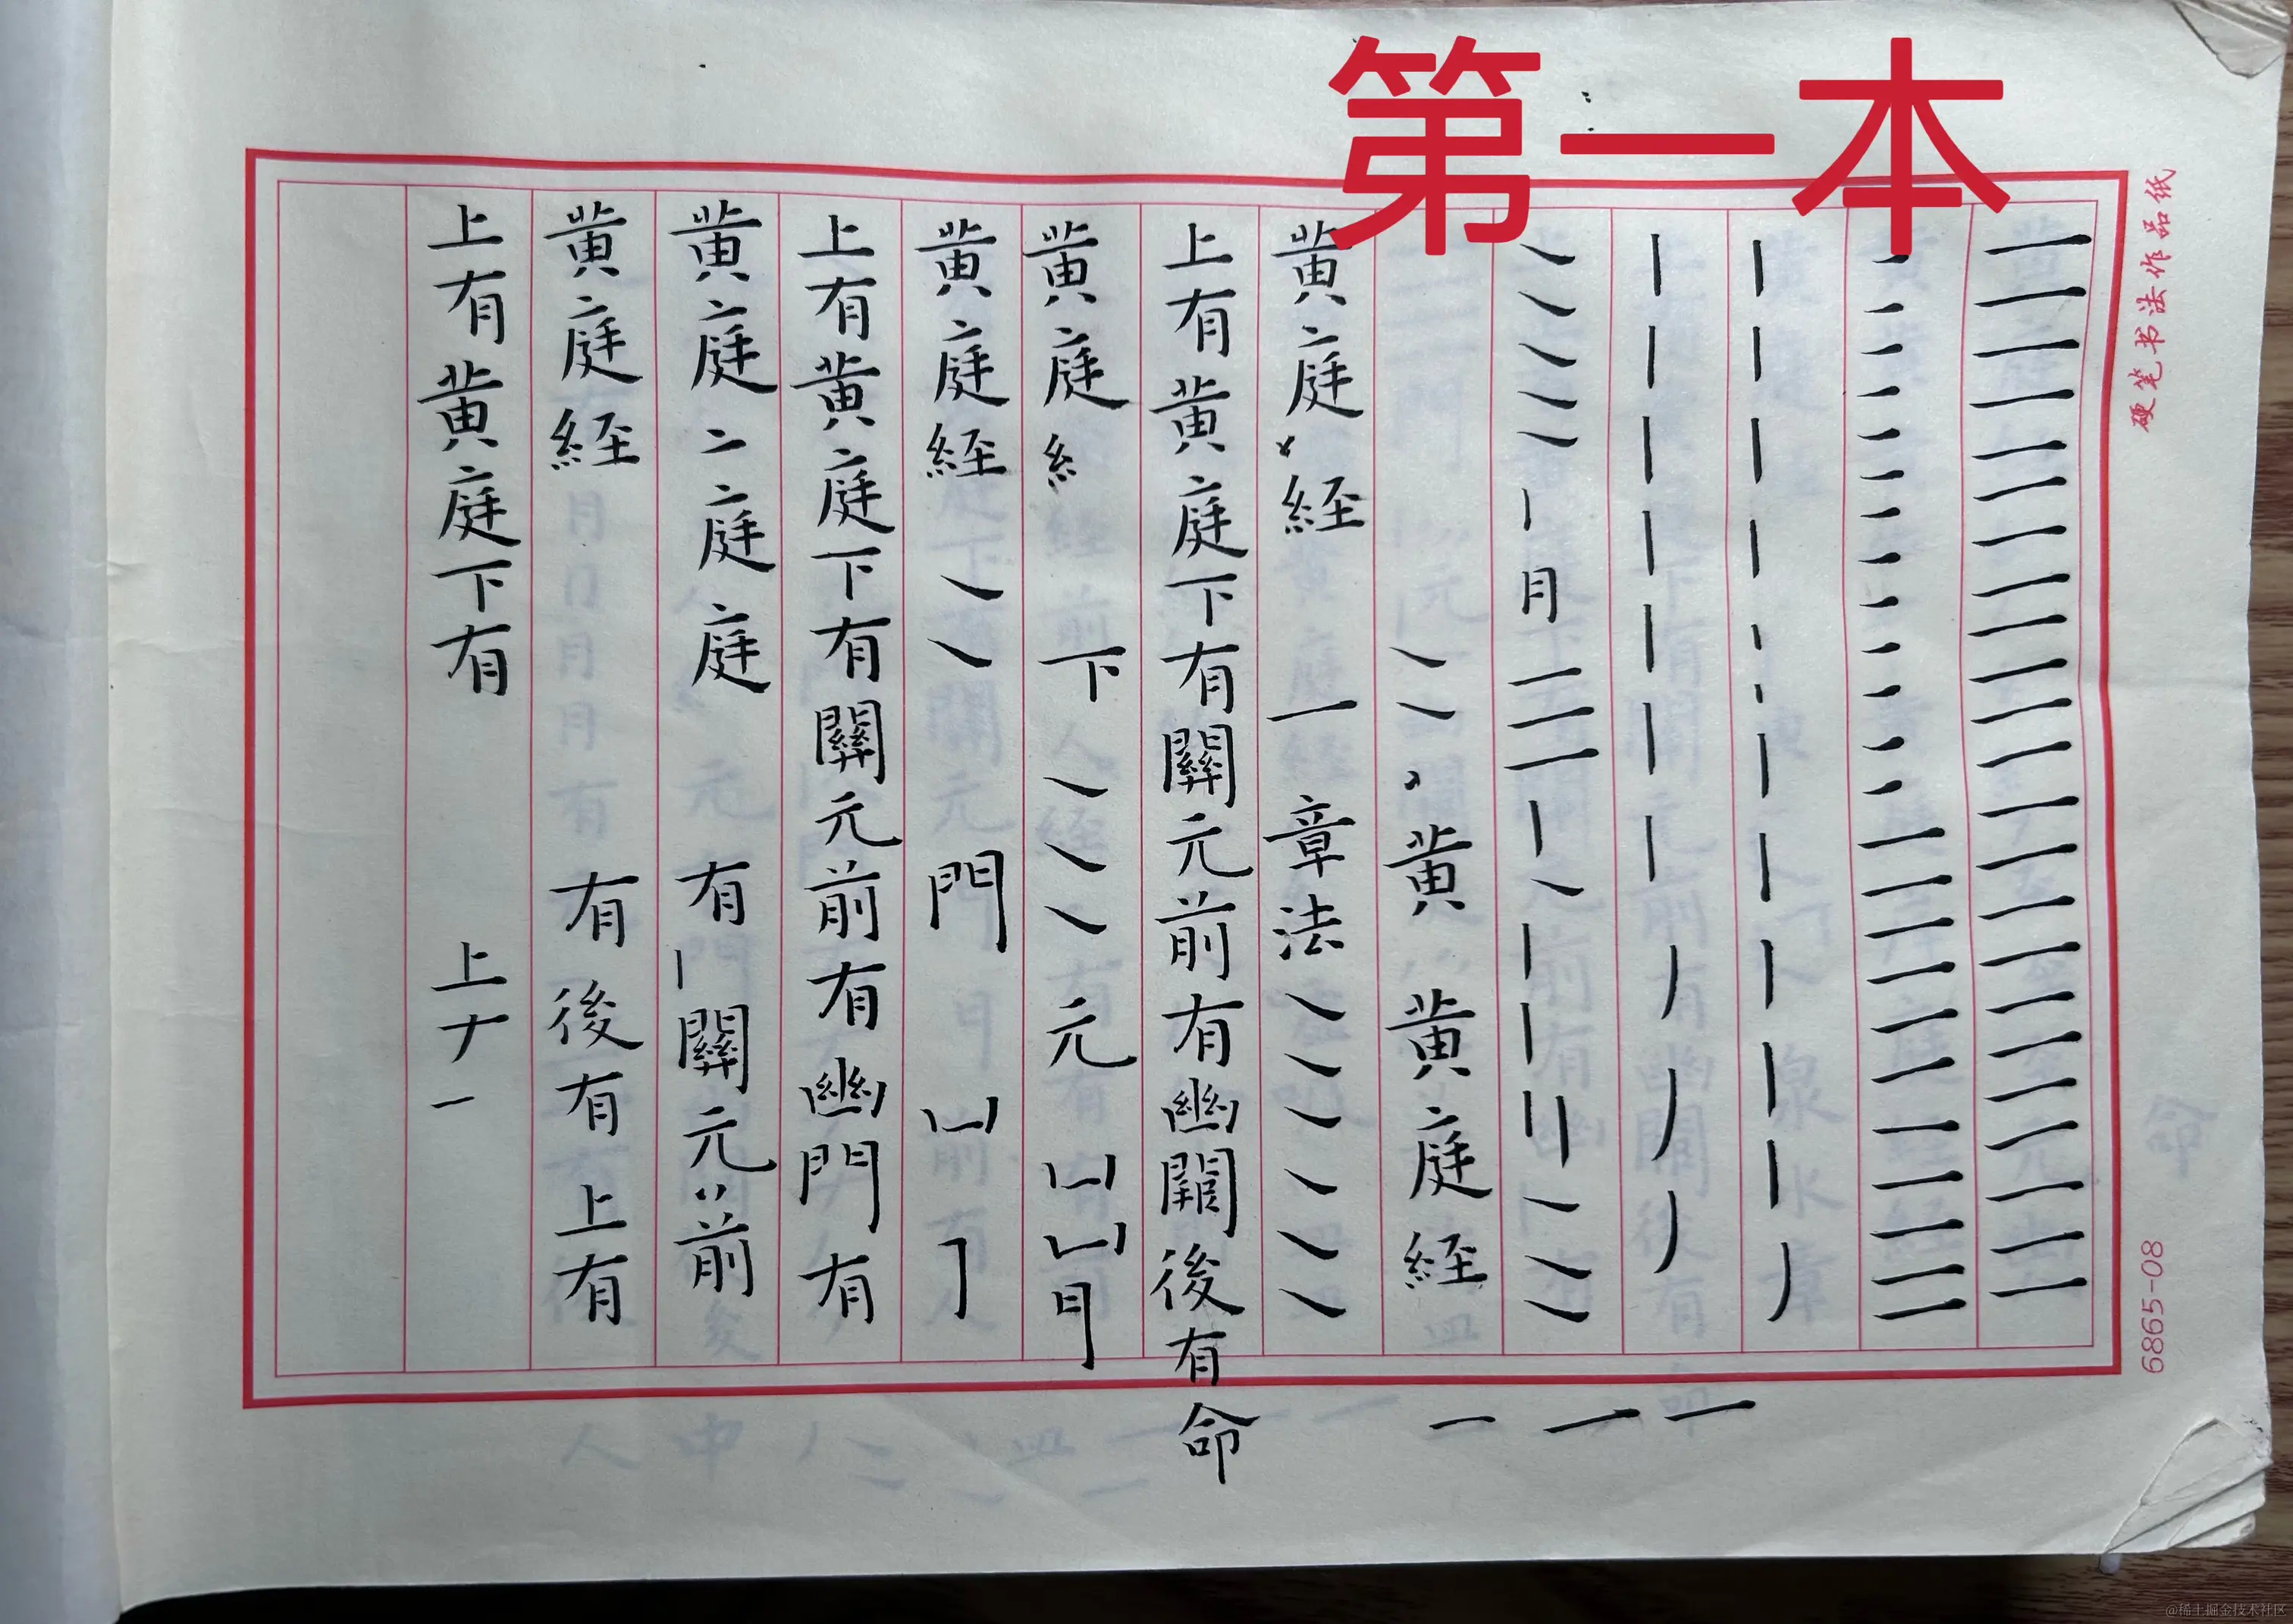 第一本
硬笔书法作品纸
6865-08
月
黄 黄庭経
黄庭経 一章法
上有黄庭下有關元前有幽闕後有命
黄庭糹 下 元
黄庭経 門
上有黄庭下有關元前有幽門有
黄庭庭庭 有關元前
黄庭経 有後有上有
上有黄庭下有 上
@稀土掘金技术社区